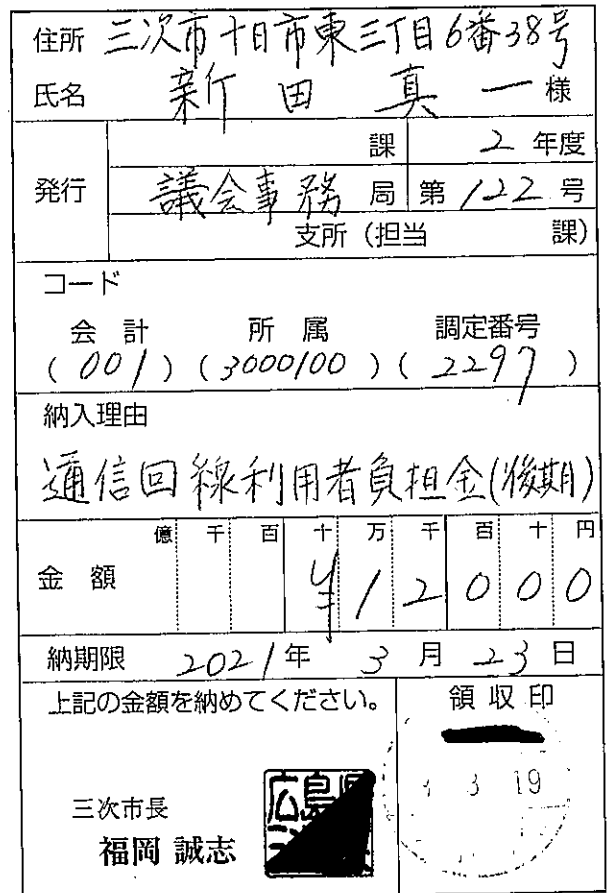 住所 三次市十日市東三丁目6番38号
氏名 新田真一様
課 2年度
発行 議会事務局 第122号
支所(担当 課)
コード
会計 所属 調定番号
(001)(3000100)(2297)
納入理由
通信回線利用者負担金(後期)
億 千 百 十 万 千 百 十 円
金額 ¥12000
納期限 2021年3月23日
上記の金額を納めてください。 領収印
3 19
三次市長
福岡 誠志